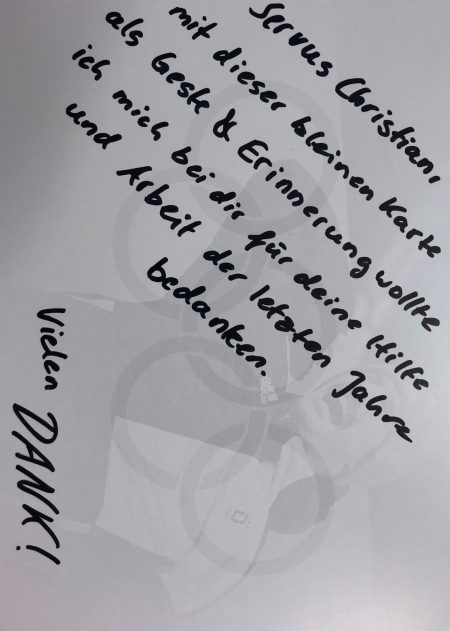 Servus Christian,
mit dieser kleinen Karte
als Geste & Erinnerung wollte
ich mich bei dir für deine Hilfe
und Arbeit der letzten Jahre
bedanken.
Vielen DANK!